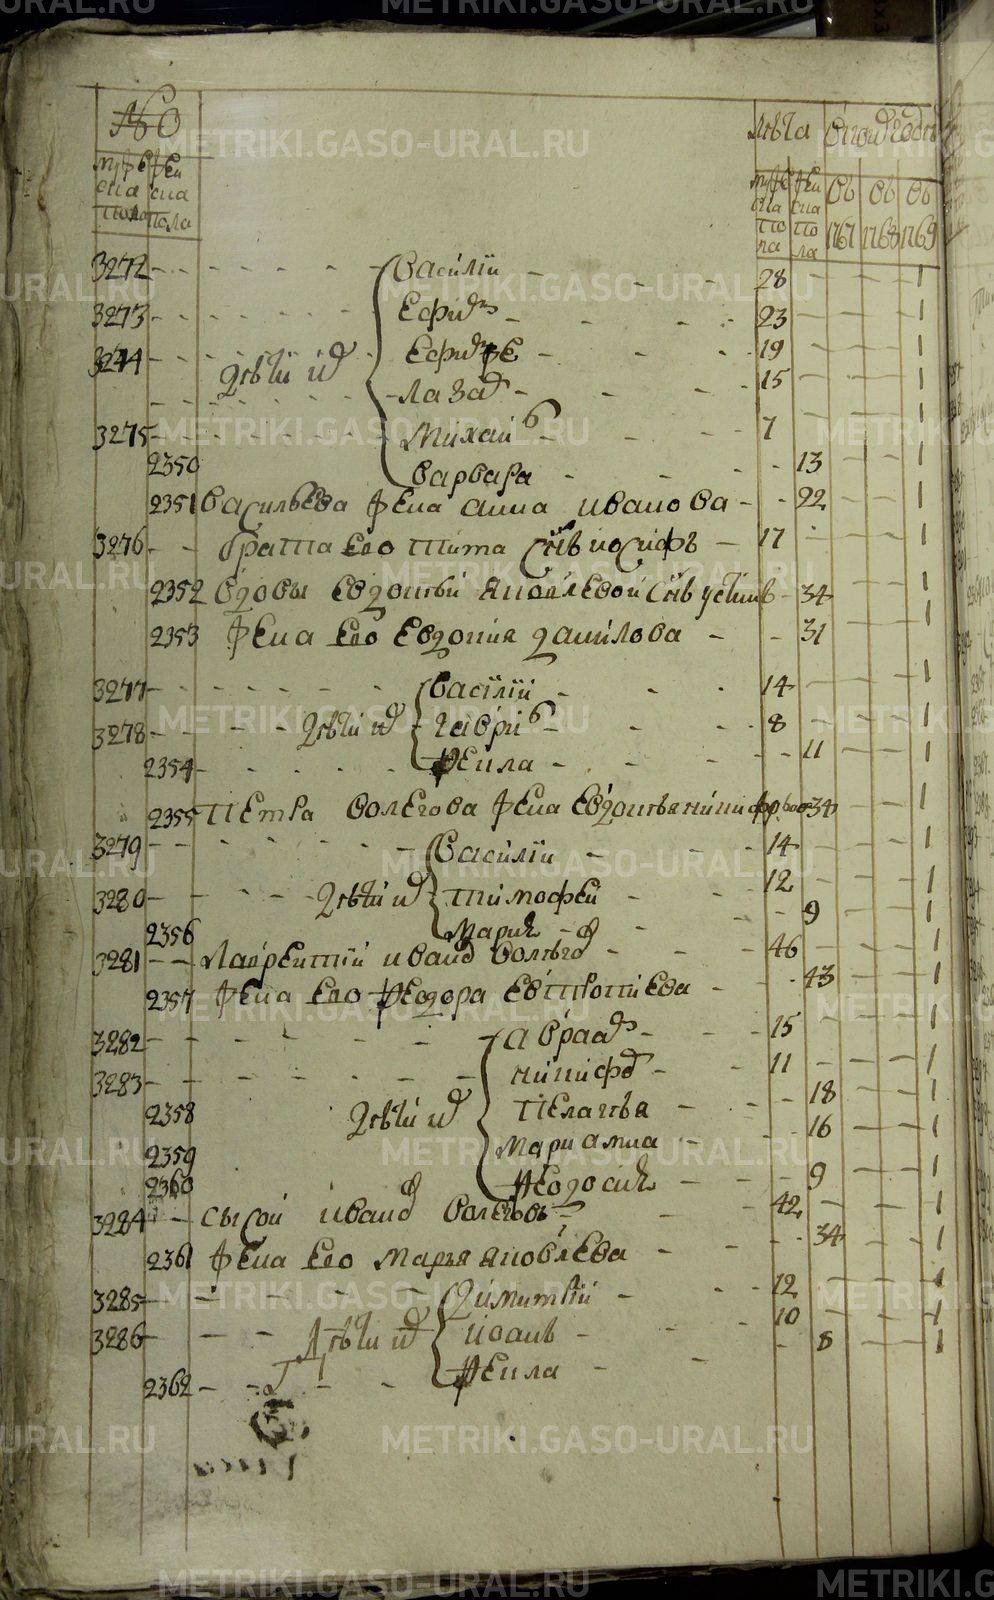 METRIKI.GASO-URAL.RU
№
мужеска пола женска пола
лѣта
мужеска пола женска пола въ 1767 въ 1768 въ 1769
3272 Василіи 28 1
3273 Ефимъ 23 1
3274 19 1
дѣти ихъ Лазар 15 1
3275 Михаил 7 1
2350 Варвара 13 1
2351 Васильева жена Анна Иванова 22 1
3276 брата ево Тита сынъ Иосифъ 17 1
2352 вдовы Евдокѣи Яковлевой 34 1
2353 жена ево Евдокия Данилова 31 1
3277 Василіи 14 1
3278 дѣти их Гаврил 8 1
2354 Фекла 11 1
2355 Петра Волегова жена Евдокѣя 34 1
3279 Василіи 14 1
3280 дѣти их Тимофей 12 1
2356 Мария 9 1
3281 Лаврентий Иванов Волегов 46 1
2357 жена ево Федора Евтропиева 43 1
3282 Авраам 15 1
3283 Никифор 11 1
2358 дѣти их Пелагѣя 18 1
2359 Мариамна 16 1
2360 Феодосия 9 1
3284 Сысой Иванов Волеговъ 42 1
2361 жена ево Марья Яковлева 34 1
3285 Димитрій 12 1
3286 дѣти их Иванъ 10 1
2362 Фекла 8 1